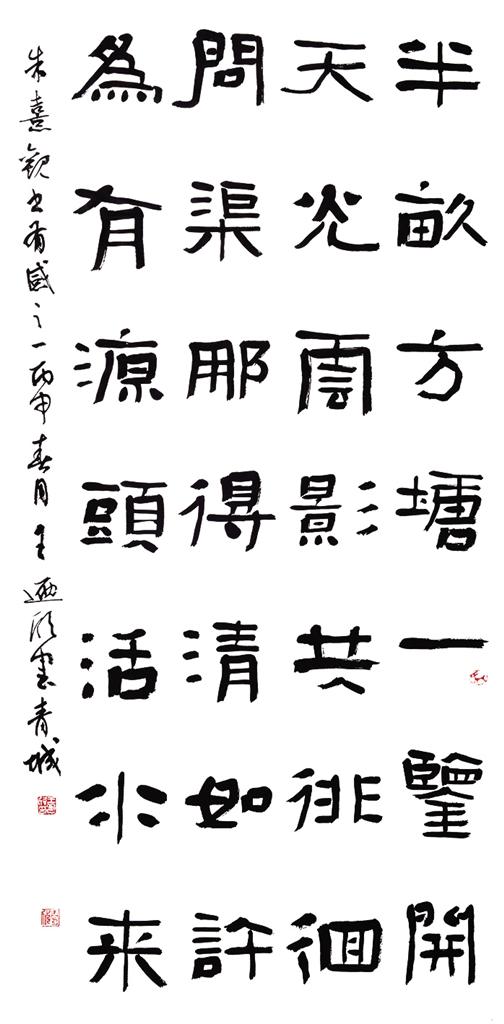 半畝方塘一鑒開
天光雲影共徘徊
問渠那得清如許
為有源頭活水来
朱熹觀书有感之一丙申春月王書青城